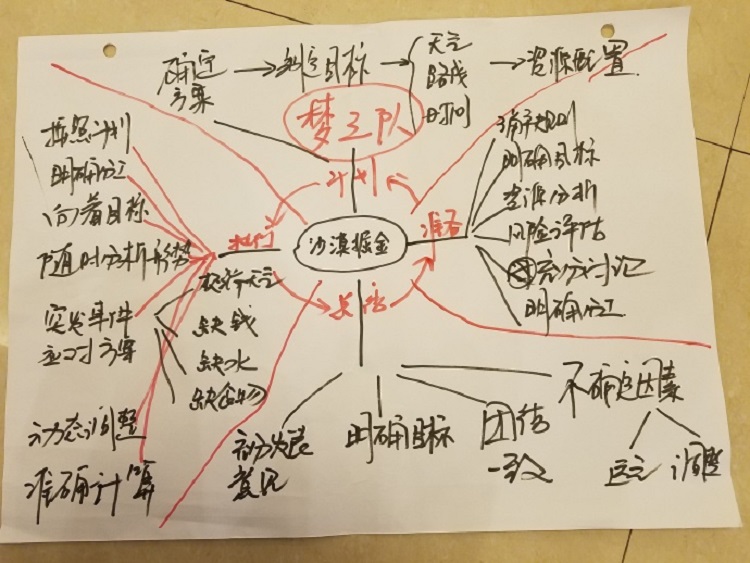 确定
方案
制定目标
天气
路线
时间
资源配置
梦之队
计划
按照计划
明确分工
向着目标
随时分析形势
突发事件
应对方案
极端天气
缺钱
缺水
缺食物
动态调整
准确计算
执行
沙漠掘金
准备
清晰规则
明确目标
资源分析
风险评估
充分讨论
明确分工
总结
充分发表
意见
明确目标
团结
一致
不确定因素
调整